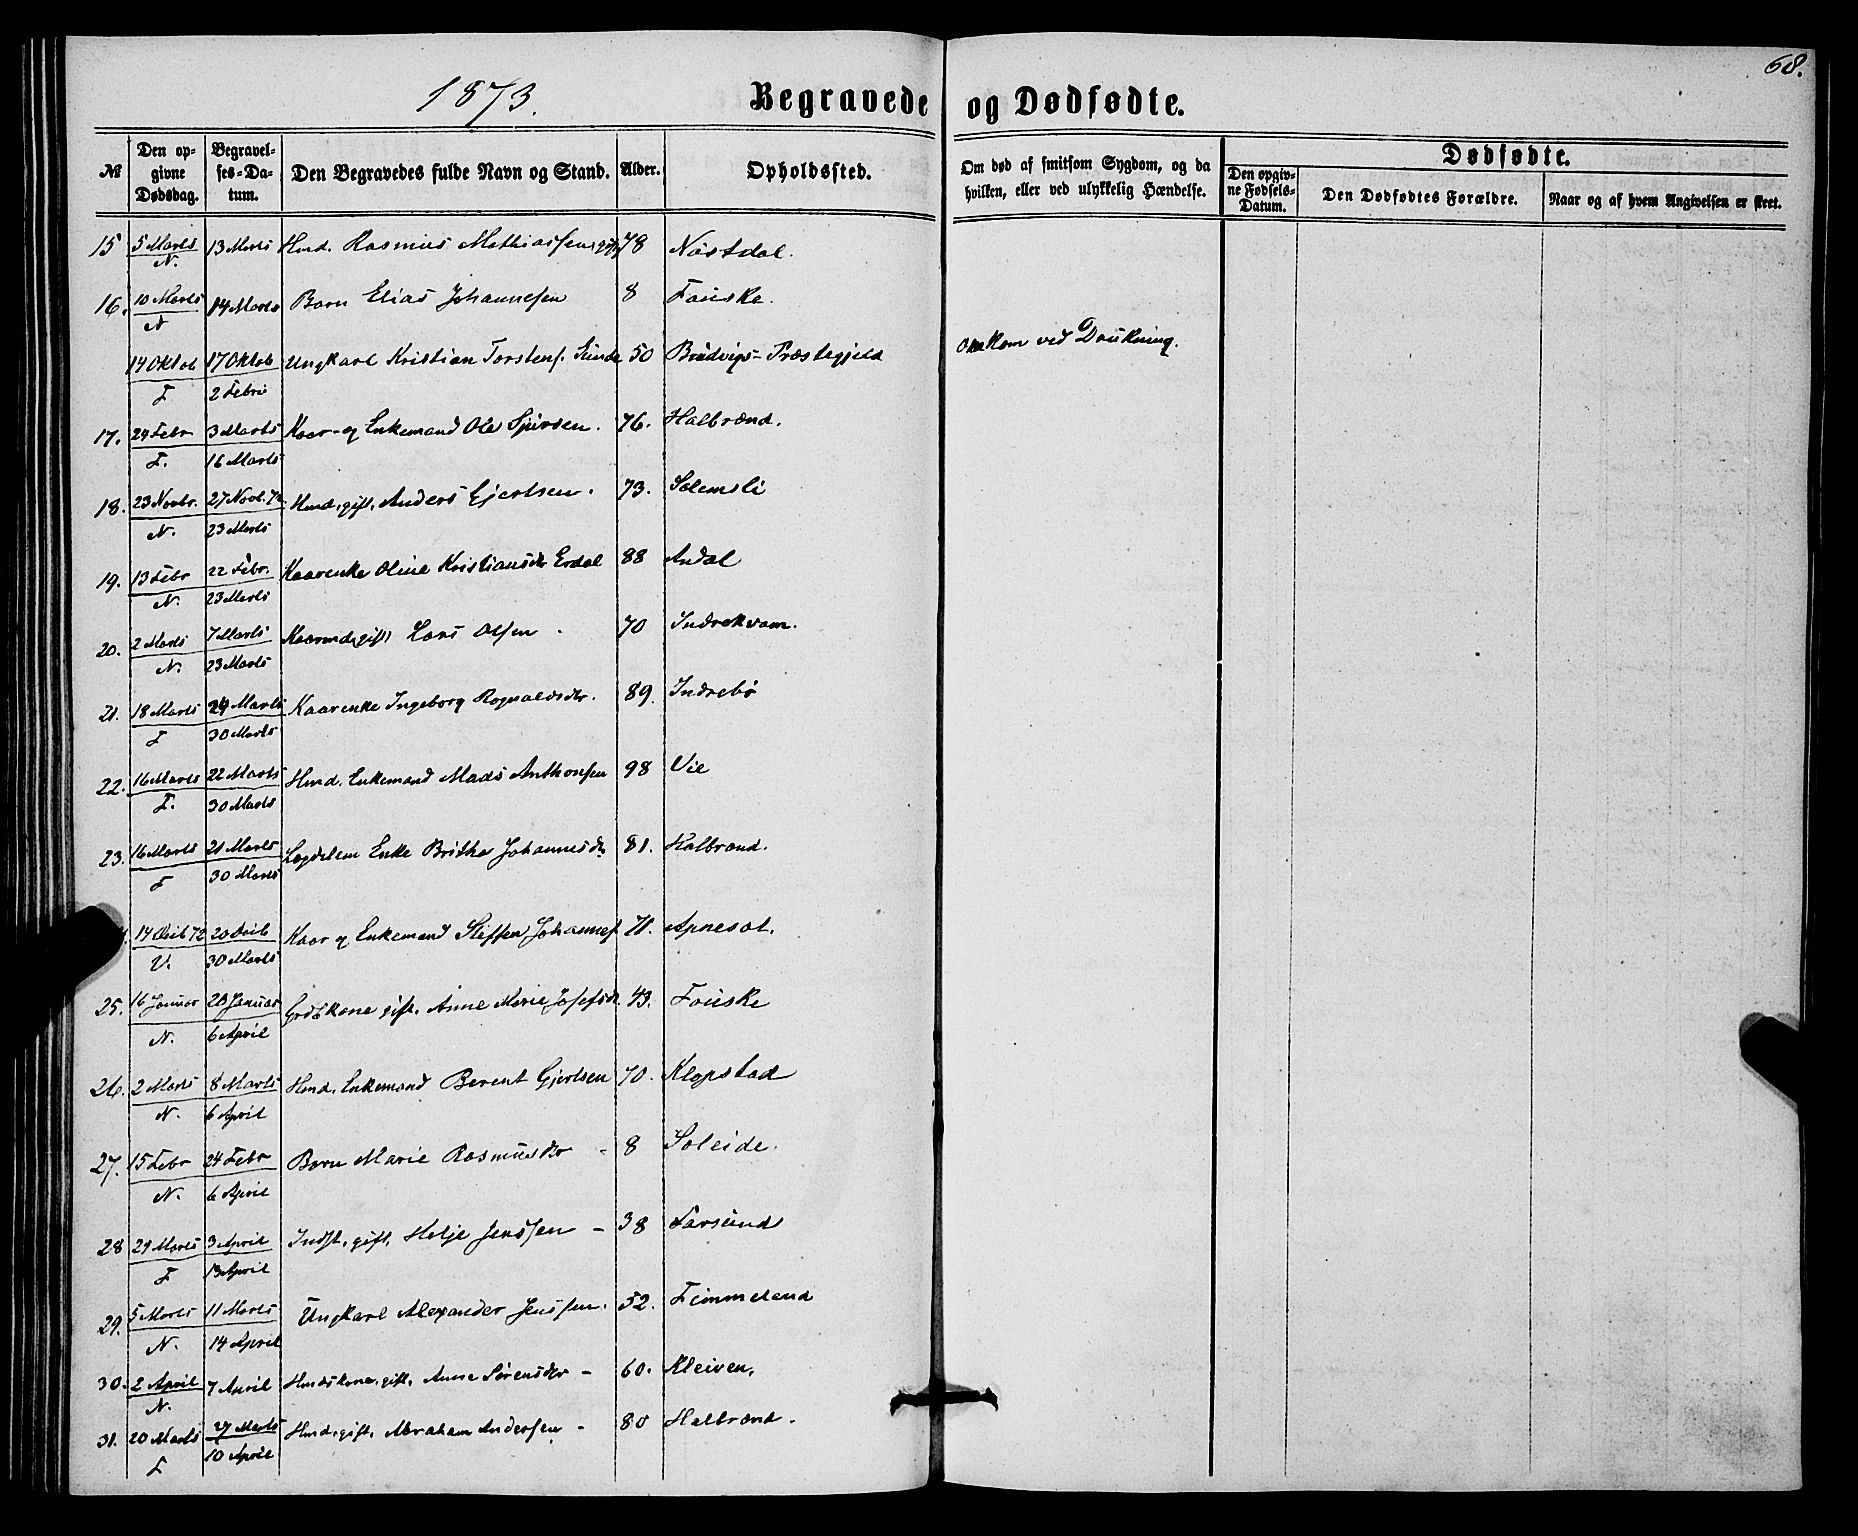 68.
1873.
Begravede og Dødfødte.
№
Den opgivne Dødsdag.
Begravelses-Datum.
Den Begravedes fulde Navn og Stand.
Alder.
Opholdssted.
Om død af smitsom Sygdom, og da hvilken, eller ved ulykkelig Hændelse.
Dødfødte.
Den opgivne Fødsels-Datum.
Den Dødfødtes Forældre.
Naar og af hvem Angivelsen er skeet.
15 5 Marts 13 Marts Hmd. Rasmus Mathiassen, gift 78 Nøstdal.
N.
16. 10 Marts 14 Marts Barn Elias Johannesen 8 Fauske.
N
14 Oktob 17 Oktob Ungkarl Kristian Torstens. Sunde 50 Brudvigs-Præstegjeld omkom ved Drukning.
F 2 Febru
17. 24 Febr 3 Marts Kaar- og Enkemand Ole Sjursen. 76. Halbrænd.
F. 16 Marts
18. 23 Novbr. 27 Novb. 72 Hmd, gift, Anders Gjertsen. 73. Solemsli
N. 23 Marts
19. 13 Febr 22 Febr. Kaarenke Oline Kristiansdr Erdal 88 Andal
N. 23 Marts
20. 2 Marts 7 Marts Kaarmd, gift, Lars Olsen - 70 Indrekvam.
N. 23 Marts
21. 18 Marts 24 Marts Kaarenke Ingeborg Rognaldsdr. 89. Indrebø
F 30 Marts
22. 16 Marts 22 Marts Hmd. Enkemand Mads Anthonsen 98 Vie
F. 30 Marts
23. 16 Marts 21 Marts Lægdslem Enke Britha Johannesdr 81. Halbrænd.
F 30 Marts
14 72 20 Kaar og Enkemand Steffen Johannes. 71. Apnesøt.
V. 30 Marts
25. 16 Januar 20 Januar kone gift, Anne Marie Josefsdr. 43. Fauske
N. 6 April
26. 2 Marts 8 Marts Hmd. Enkemand Berent Gjertsen 70. Klopstad
N. 6 April
27. 15 Febr 24 Febr Barn Marie Rasmusdtr - 8 Soleide.
N. 6 April
28 29 Marts 3 April Indst, gift, Helje Jenssen - 38 Farsund
F 13 April
29. 5 Marts 11 Marts Ungkarl Alexander Jenssen. 52. Fimmeland
N. 14 April
30. 2 April 7 April Hmdskone, gift, Anna Sørensdtr - 60. Kleiven.
N.
31. 20 Marts 27 Marts Hmd, gift, Abraham Andersen - 80 Halbrænd.
F 10 April